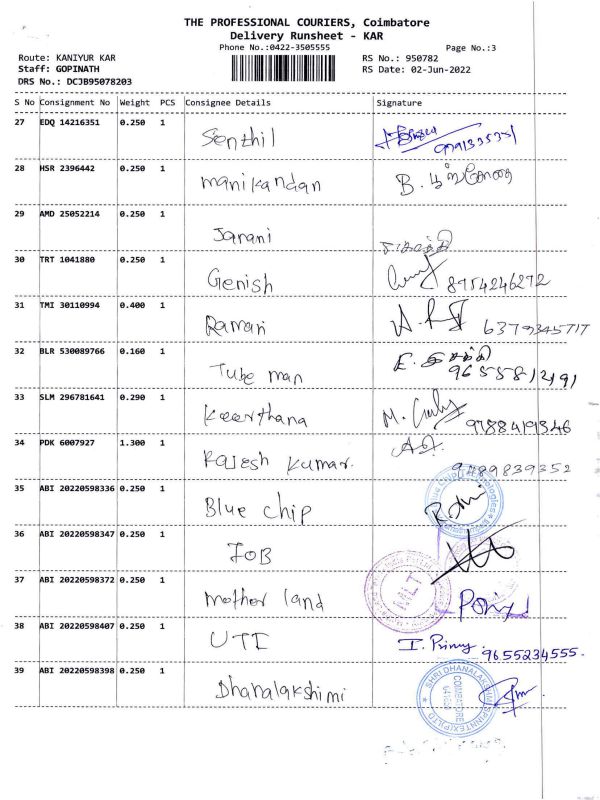 THE PROFESSIONAL COURIERS, Coimbatore
Delivery Runsheet - KAR
Phone No.:0422-3505555
Page No.:3
Route: KANIYUR KAR
RS No.: 950782
Staff: GOPINATH
RS Date: 02-Jun-2022
DRS No.: DCJB95078203
S No Consignment No Weight PCS Consignee Details Signature
27 EDQ 14216351 0.250 1
Senthil
28 HSR 2396442 0.250 1
manikandan B.
29 AMD 25052214 0.250 1
Janani
30 TRT 1041880 0.250 1
Genish 8954246272
31 TMI 30110994 0.400 1
Raman 6379345717
32 BLR 530089766 0.160 1
Tube man E. சக்தி
96555812191
33 SLM 296781641 0.290 1
Keerthana M. 9788419346
34 PDK 6007927 1.300 1
Rajesh Kumar. 9789839352
35 ABI 20220598336 0.250 1
Blue chip
36 ABI 20220598347 0.250 1
JOB
37 ABI 20220598372 0.250 1
Mother land MLT
38 ABI 20220598407 0.250 1
UTI I. 9655234555.
39 ABI 20220598398 0.250 1
Dhanalakshimi
SHRI DHANALAKSHMI SPINNTEX(P)LTD
COIMBATORE